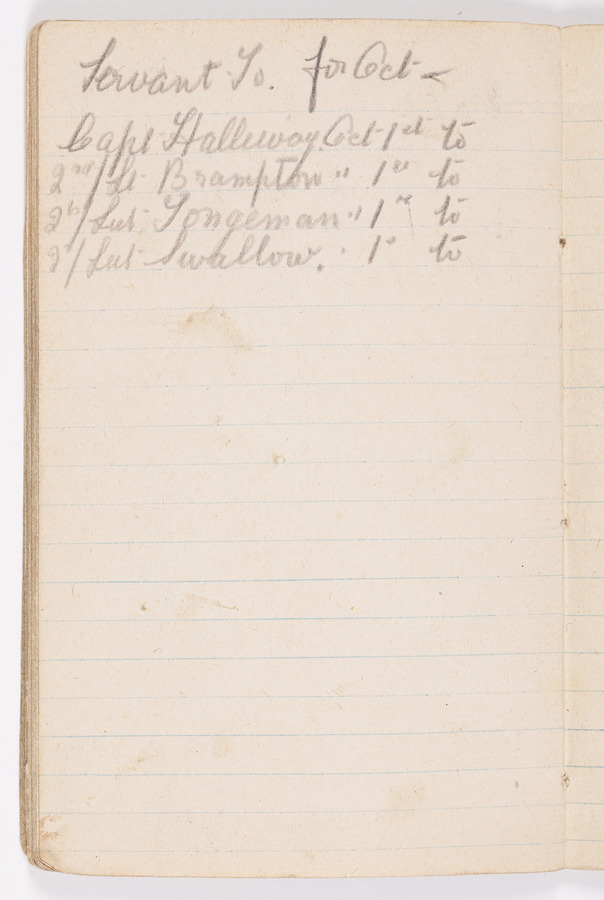 Servant To. for Oct -
Capt Halleway Oct 1st to
2nd/Lt Brampton " 1st to
2/Lut Tongeman " 1st to
2/Lut Swallow. " 1st to